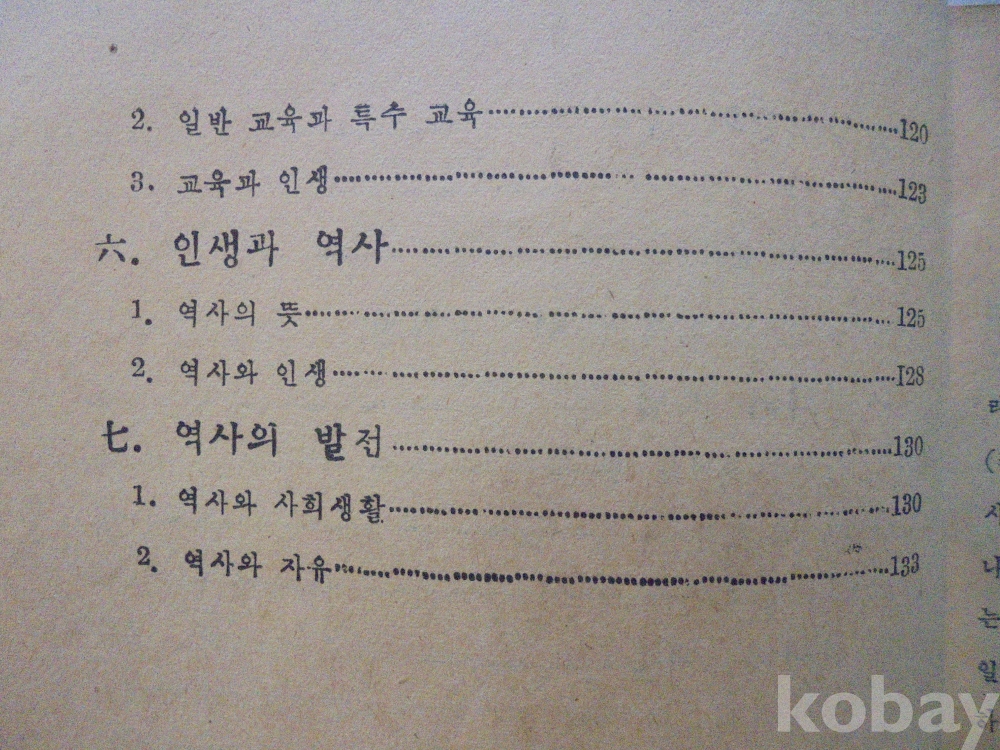 2. 일반 교육과 특수 교육……………………120
3. 교육과 인생……………………123
六. 인생과 역사……………………125
1. 역사의 뜻……………………125
2. 역사와 인생……………………128
七. 역사의 발전……………………130
1. 역사와 사회생활……………………130
2. 역사와 자유……………………133
나
는
일
kobay